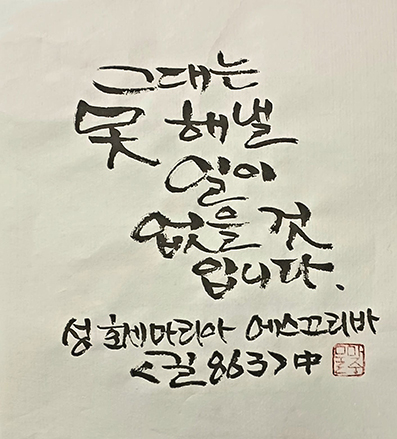 그대는
못 해낼
일이
없을 것
입니다.
성 호세마리아 에스끄리바
<길 863> 中